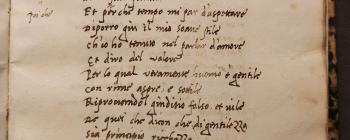 poi che
Et perche tempo mi par d'aspettare
Diporro giu il mio soave stile
Ch'io ho tenuto nel parlar d'amore
Et diro del valore
Per lo qual veramente huomo è gentile
con rime aspre, e sottile
Riprovando'l giudicio falso, et vile
Di quei che dicon che di gentilezza
sia principio ricchezza